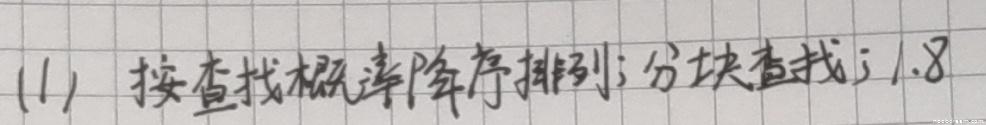 (1) 按查找概率降序排列；分块查找；1.8